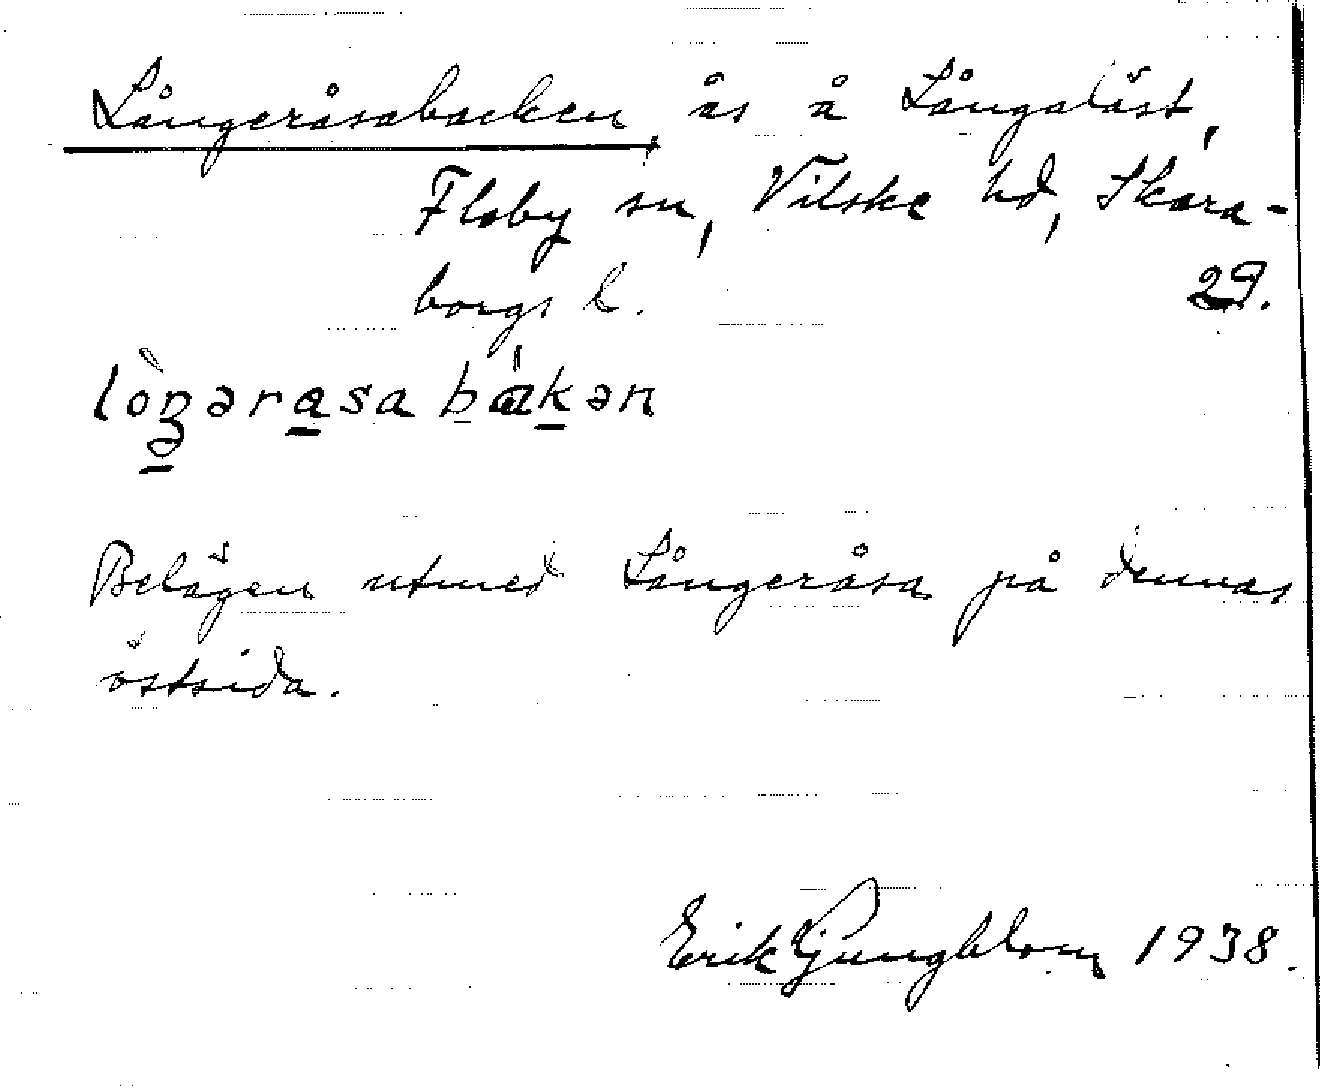 Långeråsabacken, ås å Långaläst,
Floby sn, Vilske hd, Skara-
borgs l. 29.
lòŋərasa bákən
Belägen utmed Långeråsa på dennas
östsida.
Erik Ljungblom 1938.